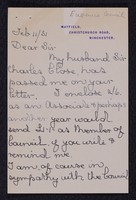 MAYFIELD,
CHRISTCHURCH ROAD,
WINCHESTER.
Feb 11/21
Dear Sir
My husband Sir
Charles Close has
passed me on your
letter. I enclose 2/6
as an Associate & perhaps
another year would
send as Member of
Council if you write &
remind me.
I am of course in
sympathy with the Council